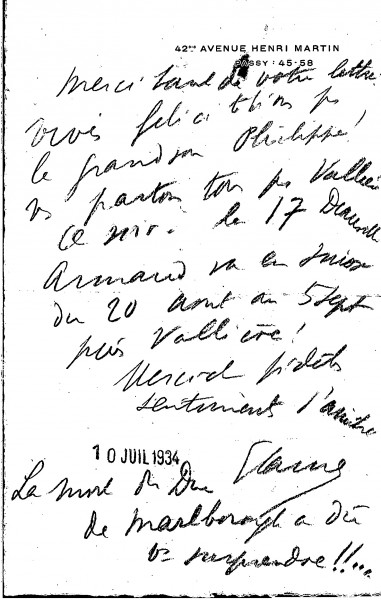 42BIS AVENUE HENRI MARTIN
PASSY : 45-58
Merci de votre lettre
vives félicitations pr
le grandson Philippe!
ns partons tous pr Vallière
ce soir. le 17 Deauville
Armand va en Suisse
du 20 aout au 5 Sept
puis Vallière!
Merci de fidèles
sentiments d'amitié
10 JUIL 1934
La mort du Duc
de Marlborough a dû
vs surprendre!!...